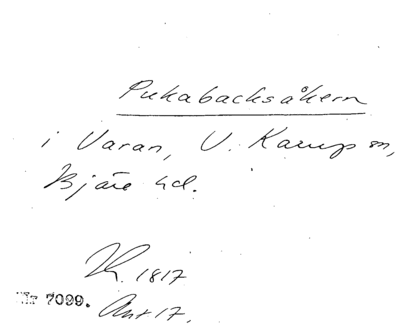 Pukabacksåkern
i Varan, V. Karup sn,
Bjäre hd.
1817
Nr 7099. Akt 17.